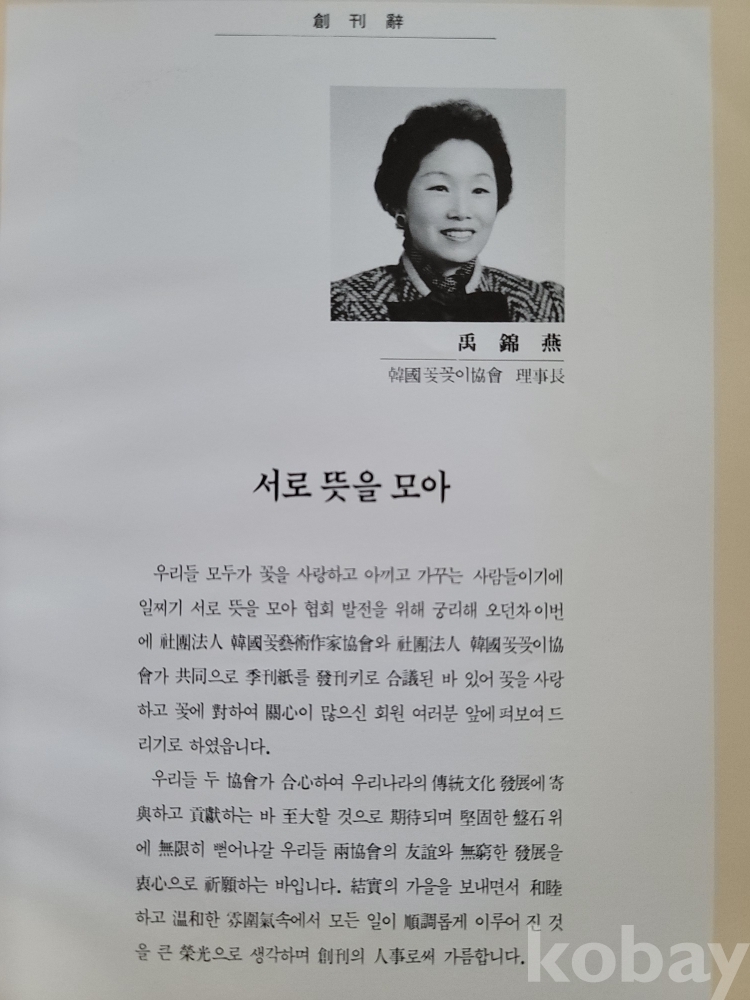 創刊辭
禹錦燕
韓國꽃꽂이協會 理事長
서로 뜻을 모아
우리들 모두가 꽃을 사랑하고 아끼고 가꾸는 사람들이기에
일찌기 서로 뜻을 모아 협회 발전을 위해 궁리해 오던차 이번
에 社團法人 韓國꽃藝術作家協會와 社團法人 韓國꽃꽂이協
會가 共同으로 季刊紙를 發刊키로 合議된 바 있어 꽃을 사랑
하고 꽃에 對하여 關心이 많으신 회원 여러분 앞에 펴보여 드
리기로 하였읍니다.
우리들 두 協會가 合心하여 우리나라의 傳統文化 發展에 寄
與하고 貢獻하는 바 至大할 것으로 期待되며 堅固한 盤石위
에 無限히 뻗어나갈 우리들 兩協會의 友誼와 無窮한 發展을
衷心으로 祈願하는 바입니다. 結實의 가을을 보내면서 和睦
하고 温和한 雰圍氣속에서 모든 일이 順調롭게 이루어 진 것
을 큰 榮光으로 생각하며 創刊의 人事로써 가름합니다.
kobay